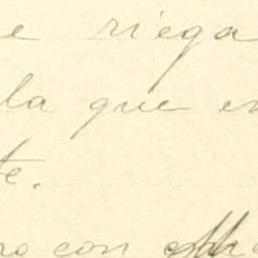 e riega
la que en
te.
ro con